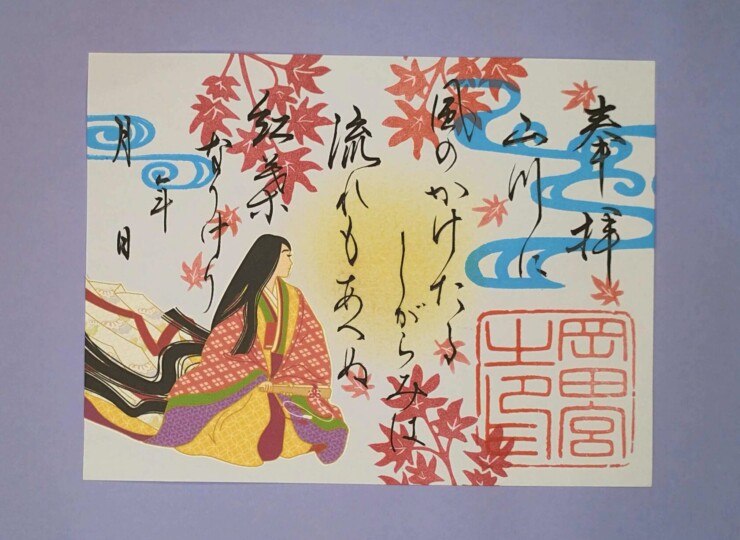 奉拝
山川に
風のかけたる
しがらみは
流れもあへぬ
紅葉
なりけり
年
月 日
岡田宮
之印